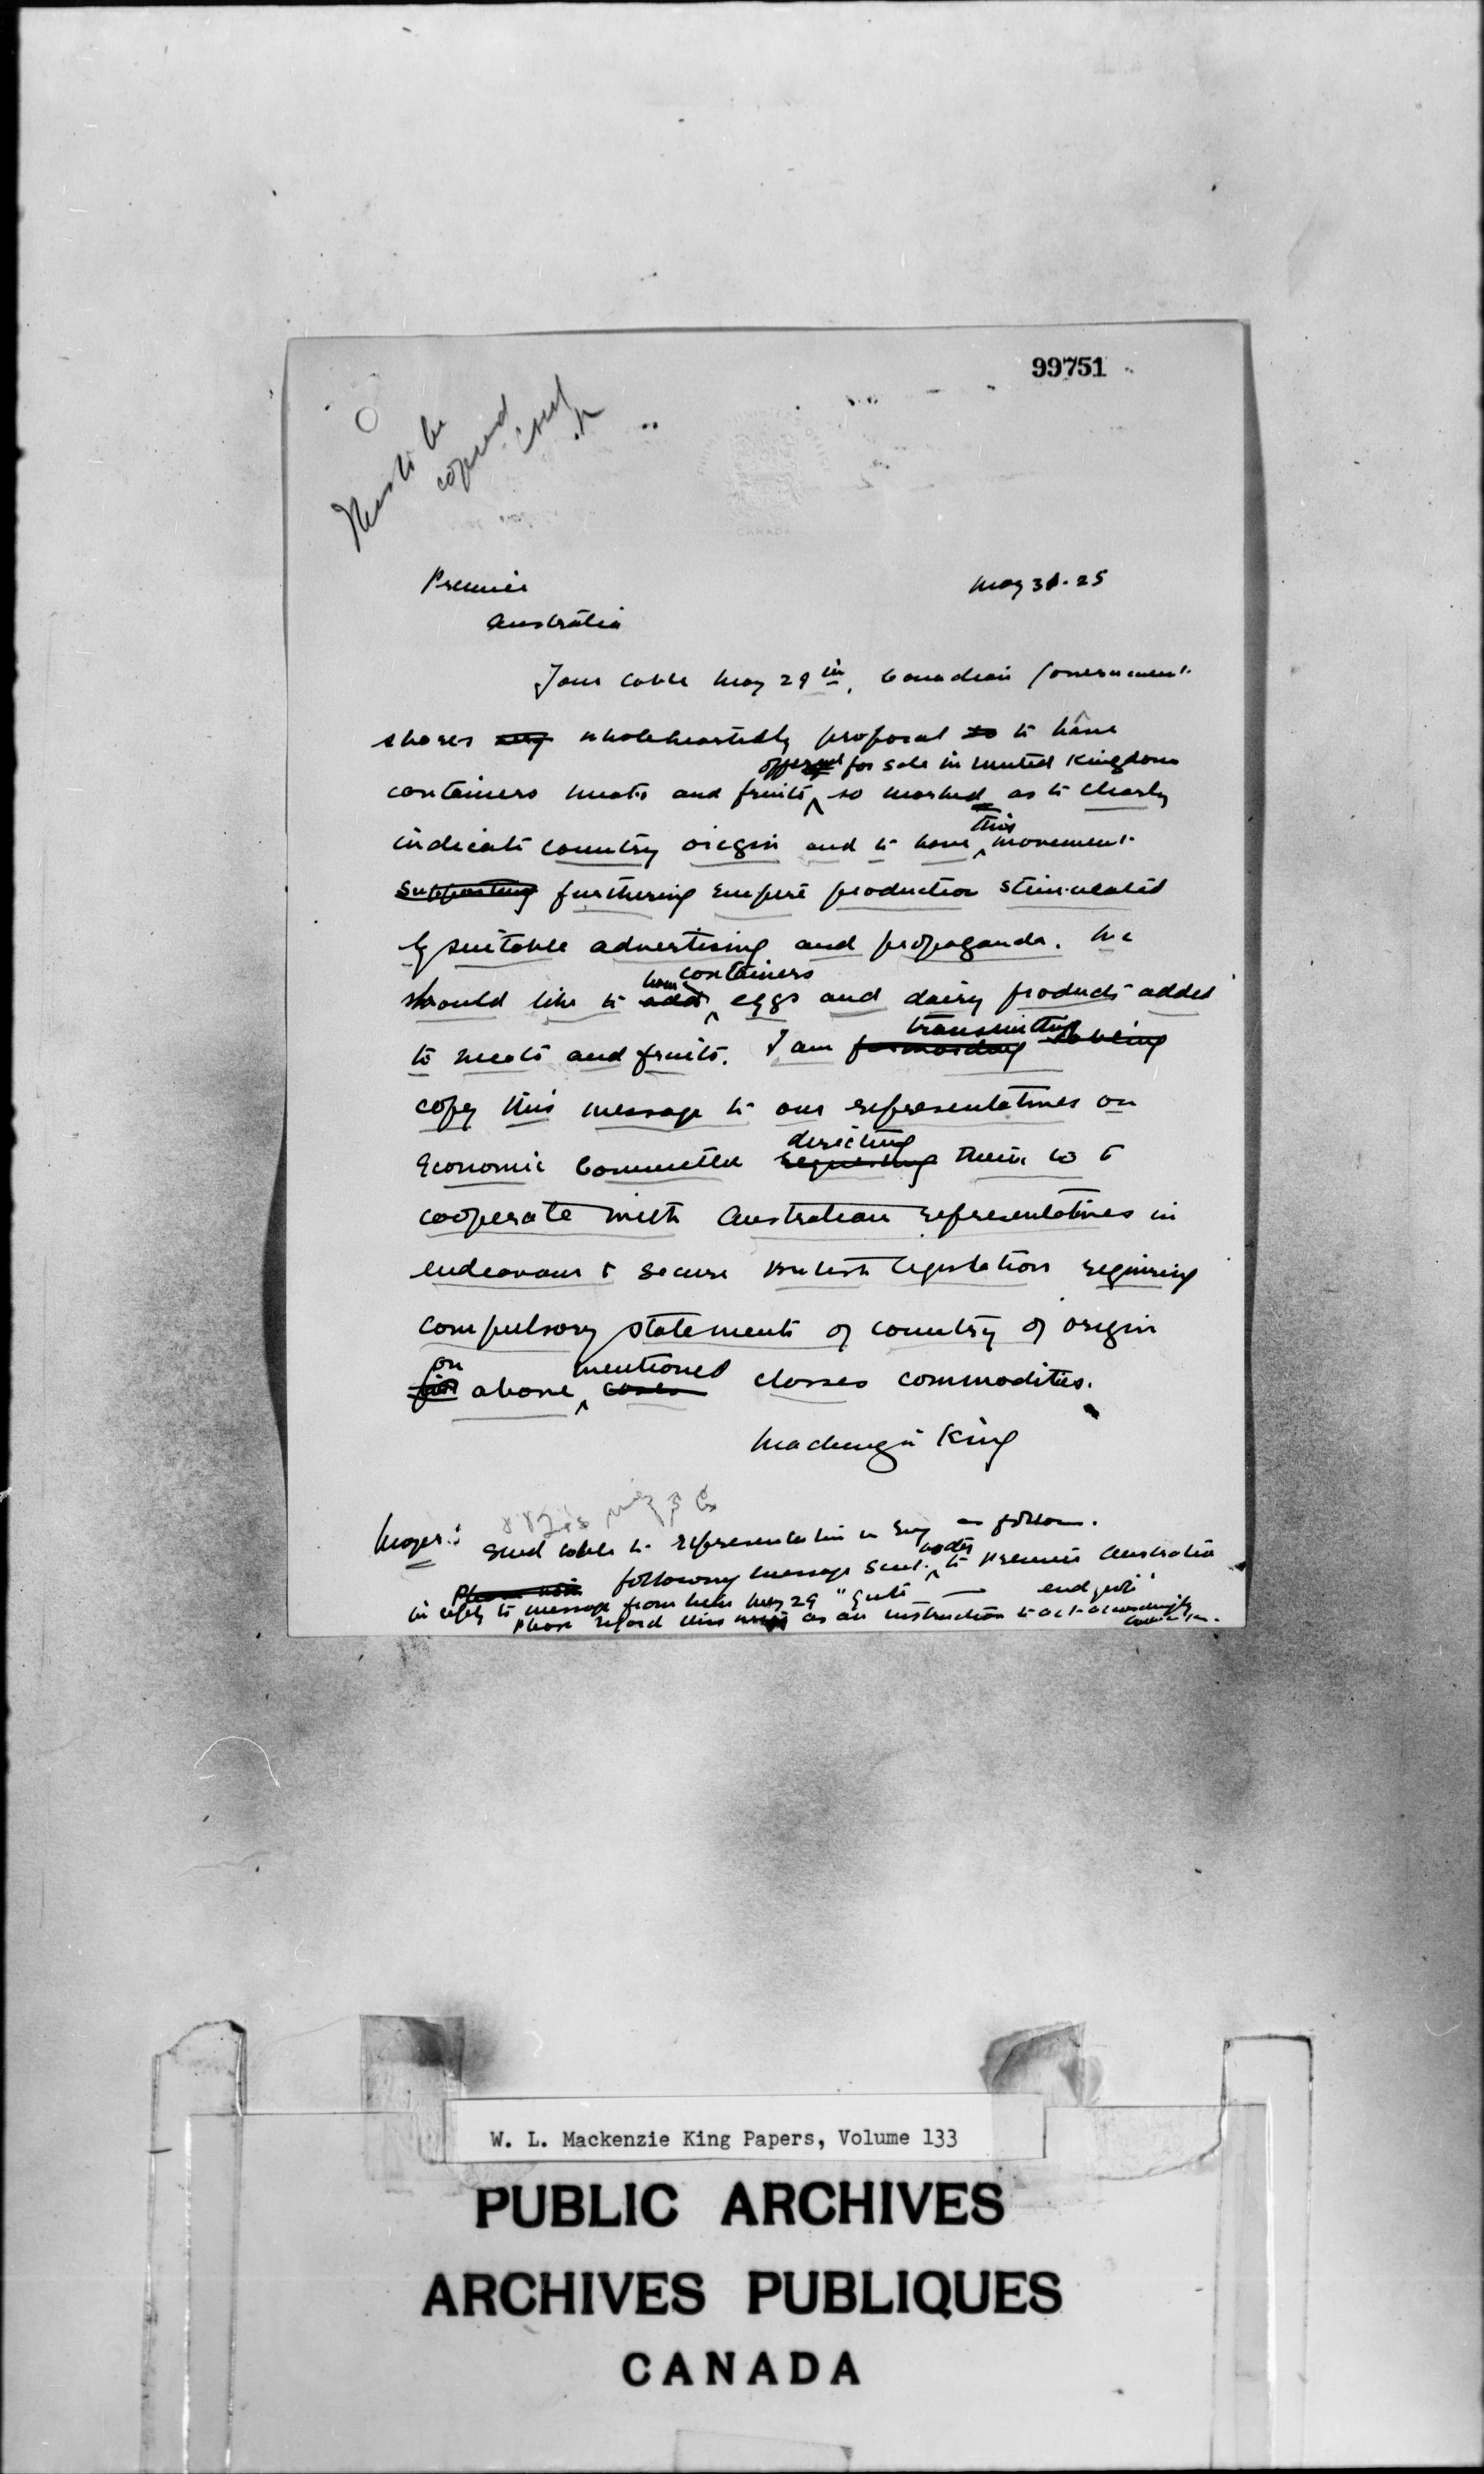 99751
Must be
copied
Premier
May 30. 25
Australia
Your cable May 29th, Canadian Government
shares very wholeheartedly proposal to to have
offered for sale in United Kingdom
containers meats and fruits ^ so marked as to clearly
this
indicate country origin and to have ^ movement
supporting furthering Empire production stimulated
by suitable advertising and propaganda. We
have containers
should like to add ^ eggs and dairy products added
transmitting
to meats and fruits. I am forwarding cabling
copy this message to our representatives on
directing
Economic Committee requesting them to
cooperate with Australian representatives in
endeavour to secure British legislation requiring
compulsory statements of country of origin
on mentioned
for above ^ classes commodities.
Mackenzie King
Moyer:
Send cable to representative in Eng as follows.
today
Please note following message sent ^ to Premier Australia
in reply to message from him May 29 "Quote — end quote"
Please regard this as an instruction to act accordingly
W. L. Mackenzie King Papers, Volume 133
PUBLIC ARCHIVES
ARCHIVES PUBLIQUES
CANADA